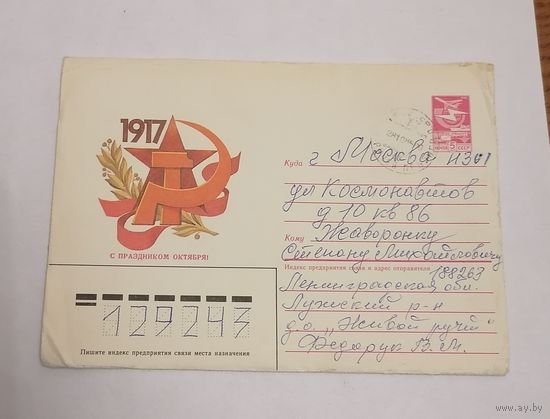 1917
С ПРАЗДНИКОМ ОКТЯБРЯ!
ПОЧТА 5 СССР
Куда г Москва И301
ул Космонавтов
д 10 кв 86
Кому Жаворонку
Степану Михайловичу
Индекс предприятия связи и адрес отправителя 188263
Ленинградская обл.
Лужский р-н
д.о. „Живой ручей"
Федорук В. М.
129243
Пишите индекс предприятия связи места назначения
www.ay.by